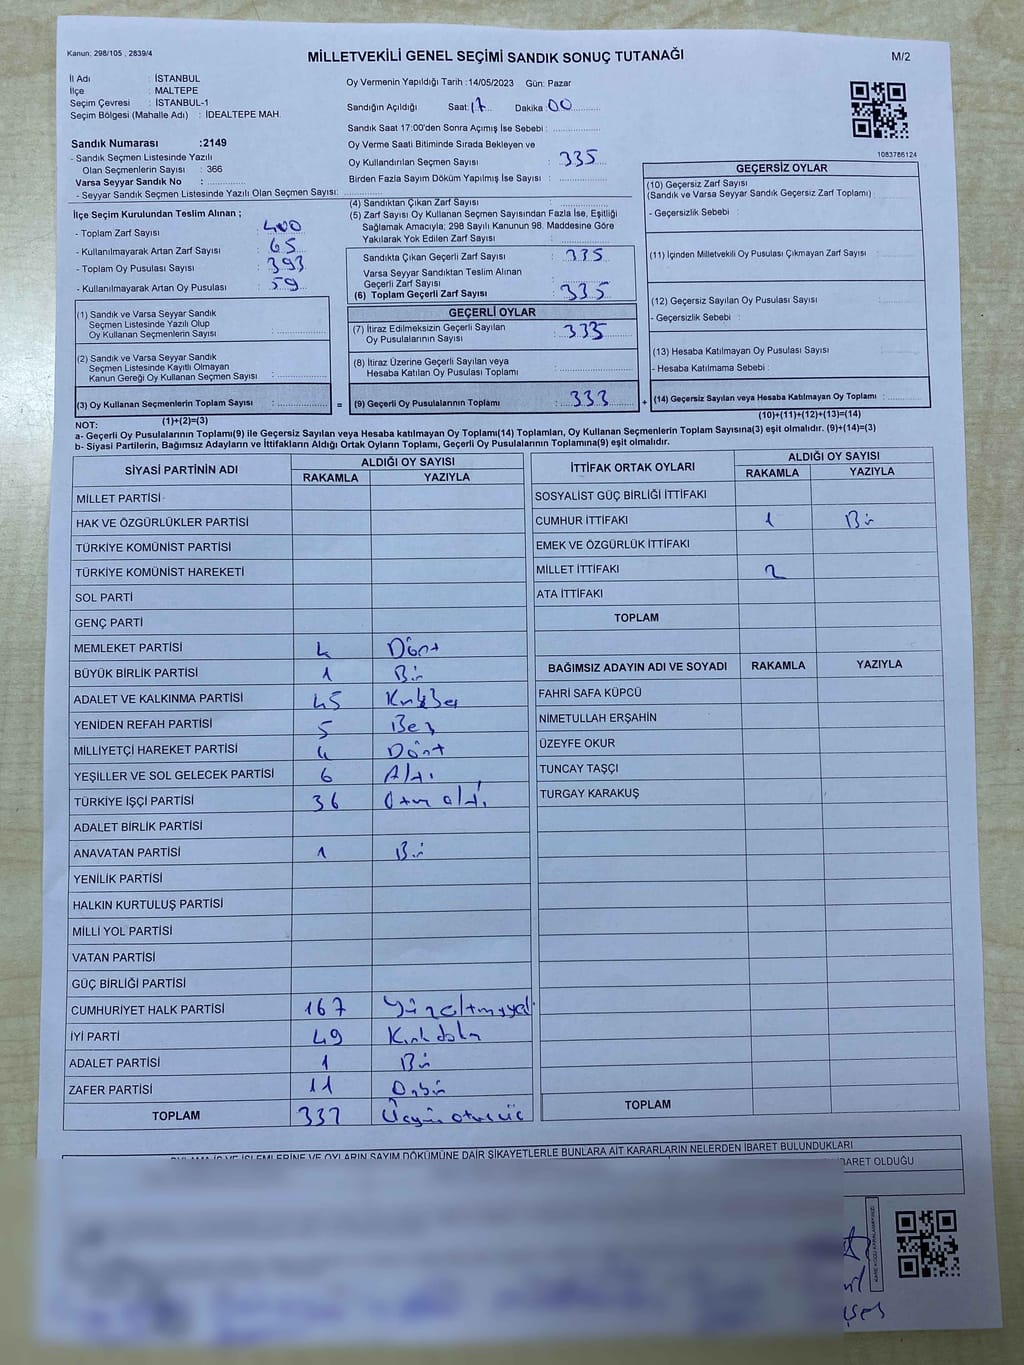 Kanun: 298/105 , 2839/4
MİLLETVEKİLİ GENEL SEÇİMİ SANDIK SONUÇ TUTANAĞI
M/2
İl Adı : İSTANBUL
İlçe : MALTEPE
Seçim Çevresi : İSTANBUL-1
Seçim Bölgesi (Mahalle Adı) : İDEALTEPE MAH.
Sandık Numarası :2149
- Sandık Seçmen Listesinde Yazılı
Olan Seçmenlerin Sayısı : 366
Varsa Seyyar Sandık No :
- Seyyar Sandık Seçmen Listesinde Yazılı Olan Seçmen Sayısı:
Oy Vermenin Yapıldığı Tarih :14/05/2023 Gün: Pazar
Sandığın Açıldığı Saat: 17 Dakika 00
Sandık Saat 17:00'den Sonra Açımış İse Sebebi :
Oy Verme Saati Bitiminde Sırada Bekleyen ve
Oy Kullandırılan Seçmen Sayısı : 335
Birden Fazla Sayım Döküm Yapılmış İse Sayısı :
1083786124
İlçe Seçim Kurulundan Teslim Alınan ;
- Toplam Zarf Sayısı : 400
- Kullanılmayarak Artan Zarf Sayısı : 65
- Toplam Oy Pusulası Sayısı : 393
- Kullanılmayarak Artan Oy Pusulası : 59
(1) Sandık ve Varsa Seyyar Sandık
Seçmen Listesinde Yazılı Olup
Oy Kullanan Seçmenlerin Sayısı :
(2) Sandık ve Varsa Seyyar Sandık
Seçmen Listesinde Kayıtlı Olmayan
Kanun Gereği Oy Kullanan Seçmen Sayısı :
(3) Oy Kullanan Seçmenlerin Toplam Sayısı :
(1)+(2)=(3)
(4) Sandıktan Çıkan Zarf Sayısı :
(5) Zarf Sayısı Oy Kullanan Seçmen Sayısından Fazla İse, Eşitliği
Sağlamak Amacıyla; 298 Sayılı Kanunun 98. Maddesine Göre
Yakılarak Yok Edilen Zarf Sayısı :
Sandıkta Çıkan Geçerli Zarf Sayısı : 335
Varsa Seyyar Sandıktan Teslim Alınan
Geçerli Zarf Sayısı :
(6) Toplam Geçerli Zarf Sayısı : 335
GEÇERLİ OYLAR
(7) İtiraz Edilmeksizin Geçerli Sayılan
Oy Pusulalarının Sayısı : 333
(8) İtiraz Üzerine Geçerli Sayılan veya
Hesaba Katılan Oy Pusulası Toplamı :
= (9) Geçerli Oy Pusulalarının Toplamı : 333 +
GEÇERSİZ OYLAR
(10) Geçersiz Zarf Sayısı
(Sandık ve Varsa Seyyar Sandık Geçersiz Zarf Toplamı) :
- Geçersizlik Sebebi :
(11) İçinden Milletvekili Oy Pusulası Çıkmayan Zarf Sayısı :
(12) Geçersiz Sayılan Oy Pusulası Sayısı :
- Geçersizlik Sebebi :
(13) Hesaba Katılmayan Oy Pusulası Sayısı :
- Hesaba Katılmama Sebebi :
(14) Geçersiz Sayılan veya Hesaba Katılmayan Oy Toplamı :
(10)+(11)+(12)+(13)=(14)
NOT:
a- Geçerli Oy Pusulalarının Toplamı(9) ile Geçersiz Sayılan veya Hesaba katılmayan Oy Toplamı(14) Toplamları, Oy Kullanan Seçmenlerin Toplam Sayısına(3) eşit olmalıdır. (9)+(14)=(3)
b- Siyasi Partilerin, Bağımsız Adayların ve İttifakların Aldığı Ortak Oyların Toplamı, Geçerli Oy Pusulalarının Toplamına(9) eşit olmalıdır.
SİYASİ PARTİNİN ADI ALDIĞI OY SAYISI
RAKAMLA YAZIYLA
MİLLET PARTİSİ
HAK VE ÖZGÜRLÜKLER PARTİSİ
TÜRKİYE KOMÜNİST PARTİSİ
TÜRKİYE KOMÜNİST HAREKETİ
SOL PARTİ
GENÇ PARTİ
MEMLEKET PARTİSİ 4 Dört
BÜYÜK BİRLİK PARTİSİ 1 Bir
ADALET VE KALKINMA PARTİSİ 45 Kırkbeş
YENİDEN REFAH PARTİSİ 5 Beş
MİLLİYETÇİ HAREKET PARTİSİ 4 Dört
YEŞİLLER VE SOL GELECEK PARTİSİ 6 Altı
TÜRKİYE İŞÇİ PARTİSİ 36 Otuz altı
ADALET BİRLİK PARTİSİ
ANAVATAN PARTİSİ 1 Bir
YENİLİK PARTİSİ
HALKIN KURTULUŞ PARTİSİ
MİLLİ YOL PARTİSİ
VATAN PARTİSİ
GÜÇ BİRLİĞİ PARTİSİ
CUMHURİYET HALK PARTİSİ 167 Yüzaltmışyedi
İYİ PARTİ 49 Kırkdokuz
ADALET PARTİSİ 1 Bir
ZAFER PARTİSİ 11 Onbir
TOPLAM Üçyüzotuzüç
İTTİFAK ORTAK OYLARI ALDIĞI OY SAYISI
RAKAMLA YAZIYLA
SOSYALİST GÜÇ BİRLİĞİ İTTİFAKI
CUMHUR İTTİFAKI 1 Bir
EMEK VE ÖZGÜRLÜK İTTİFAKI
MİLLET İTTİFAKI 2
ATA İTTİFAKI
TOPLAM
BAĞIMSIZ ADAYIN ADI VE SOYADI RAKAMLA YAZIYLA
FAHRİ SAFA KÜPCÜ
NİMETULLAH ERŞAHİN
ÜZEYFE OKUR
TUNCAY TAŞÇI
TURGAY KARAKUŞ
TOPLAM
İŞLEMLERİNE VE OYLARIN SAYIM DÖKÜMÜNE DAİR ŞİKAYETLERLE BUNLARA AİT KARARLARIN NELERDEN İBARET BULUNDUKLARI
OLDUĞU